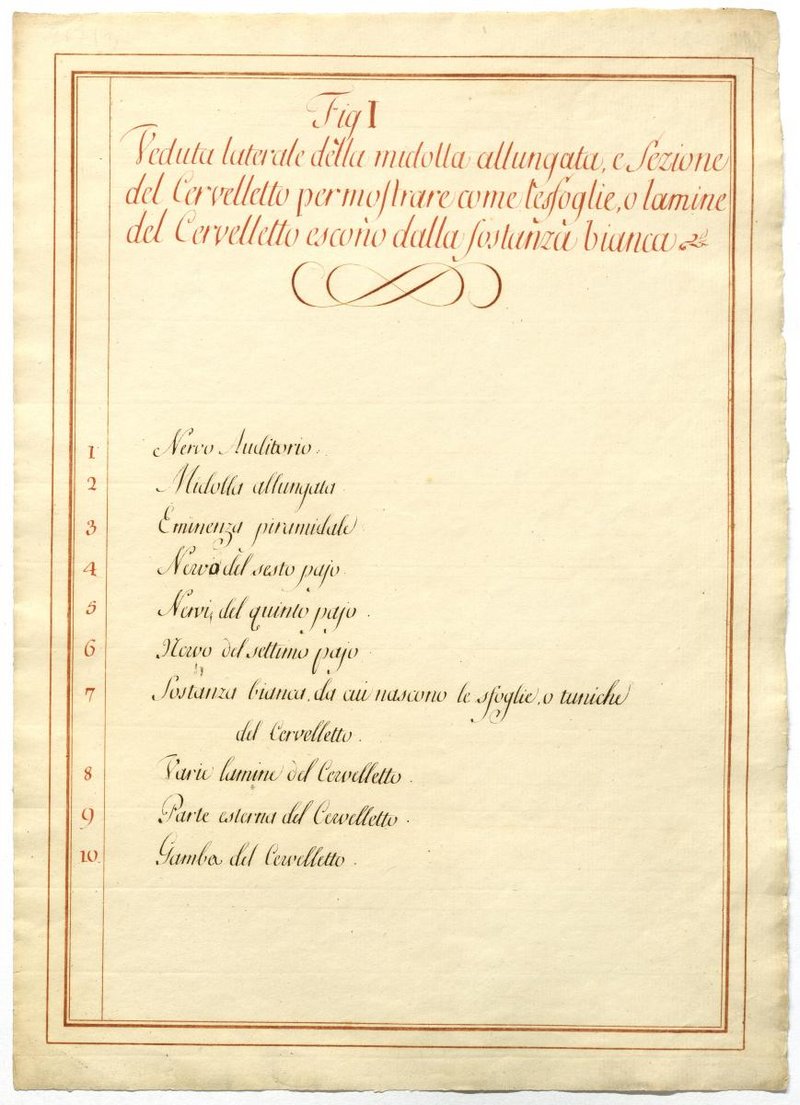 Fig I
Veduta laterale della midolla allungata, e Sezione
del Cervelletto per mostrare come le sfoglie, o lamine
del Cervelletto escono dalla sostanza bianca
1 Nervo Auditorio.
2 Midolla allungata.
3 Eminenza piramidale
4 Nervo del sesto pajo.
5 Nervi del quinto pajo.
6 Nervo del settimo pajo
7 Sostanza bianca, da cui nascono le sfoglie, o tuniche
del Cervelletto.
8 Varie lamine del Cervelletto.
9 Parte esterna del Cervelletto.
10 Gamba del Cervelletto.